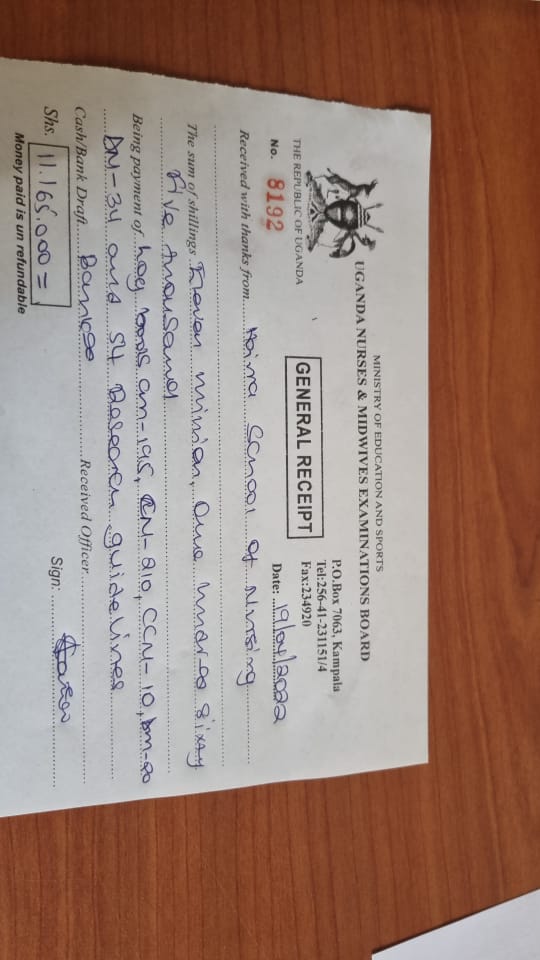 MINISTRY OF EDUCATION AND SPORTS
UGANDA NURSES & MIDWIVES EXAMINATIONS BOARD
THE REPUBLIC OF UGANDA
P.O.Box 7063, Kampala
Tel:256-41-231151/4
Fax:234920
GENERAL RECEIPT
No. 8192
Date: 19/04/2022
Received with thanks from Hoima School of Nursing
The sum of shillings Eleven million, One hundred Sixty
Five thousand
Being payment of log books CM-195, CN-210, CCN-10, DM-20
DN-34 and 54 Research guidelines
Cash/Bank Draft Banked Received Officer
Sign:
Shs. 11,165,000=
Money paid is un refundable